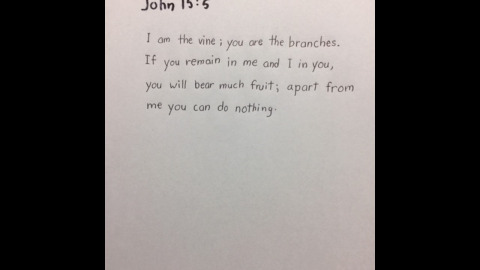 John 15:5
I am the vine; you are the branches.
If you remain in me and I in you,
you will bear much fruit; apart from
me you can do nothing.